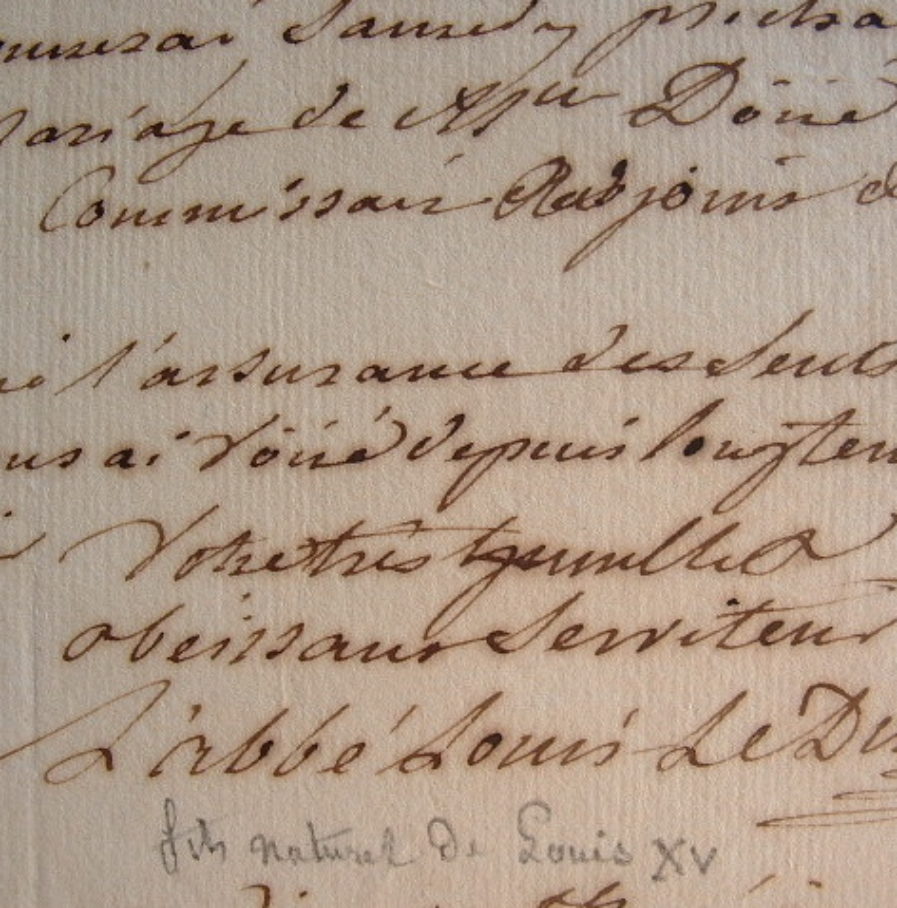 Samedy procha
Mariage de Mr Döüé
Commissair Adjoint d
l'assurance des Sent
us ai Voüé depuis longtem
Votre très humble &
obeissant Serviteur
L'abbé Louis Le Du
fils naturel de Louis XV